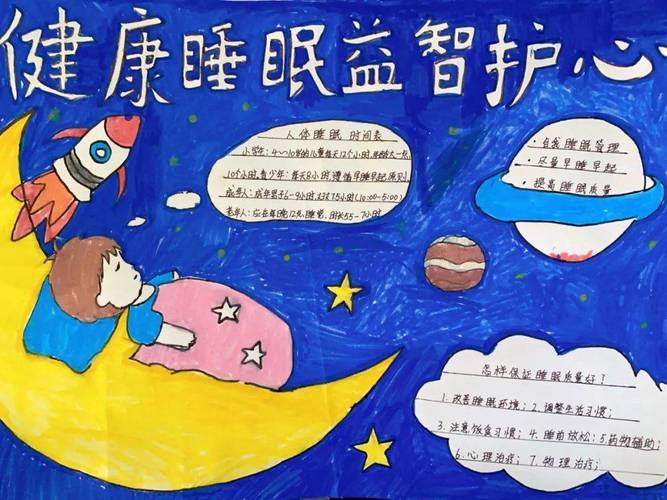 健康睡眠益智护心
人体睡眠时间表
小学生：4～10岁的儿童每天12个小时，年龄大一点
10个小时，青少年：每天8小时，遵循早睡早起原则
成年人：成年男子6-9小时，女子7.5小时(10:00-5:00)
老年人：应在每晚12点睡觉，时长5.5-7小时
·自我睡眠管理
·尽量早睡早起
·提高睡眠质量
怎样保证睡眠质量好？
1.改善睡眠环境；2.调整生活习惯；
3.注意饮食习惯；4.睡前放松；5.药物辅助；
6.心理治疗；7.物理治疗；